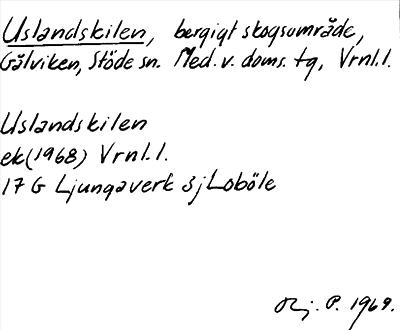 Uslandskilen, bergigt skogsområde,
Gålviken, Stöde sn. Med. v. doms. tg, Vrnl. l.
Uslandskilen
ek (1968) Vrnl. l.
17 G Ljungaverk 3 j Loböle
P. 1969.